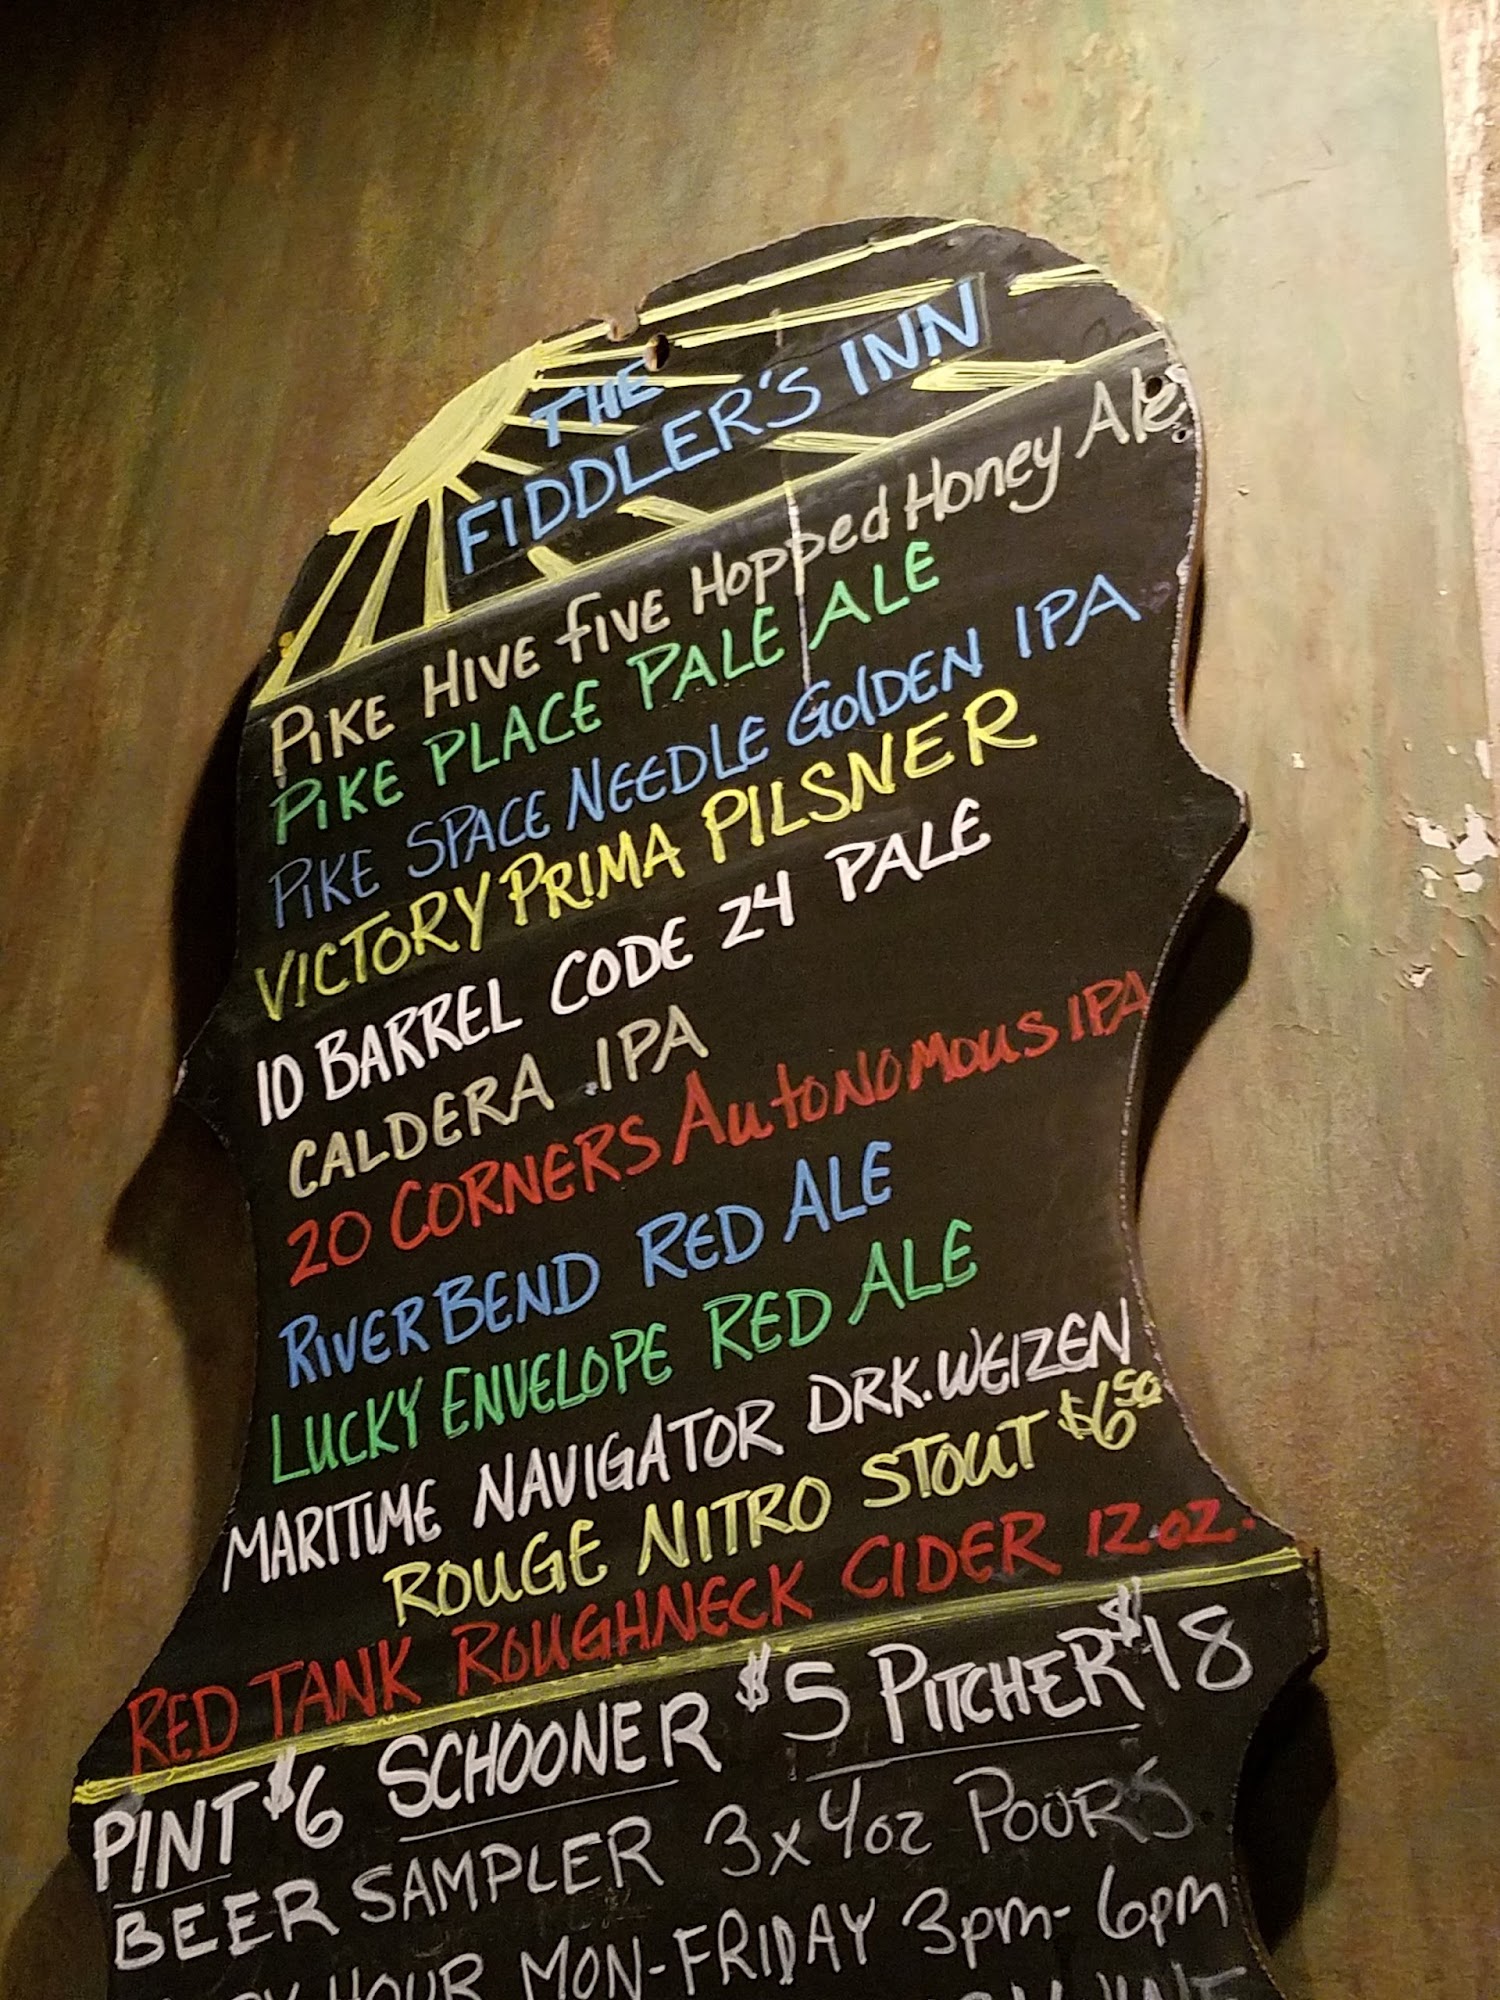 THE
FIDDLER'S INN
PIKE HIVE FIVE Hopped Honey Ale
PIKE PLACE PALE ALE
PIKE SPACE NEEDLE GOLDEN IPA
VICTORY PRIMA PILSNER
10 BARREL CODE 24 PALE
CALDERA IPA
20 CORNERS AUTONOMOUS IPA
RIVER BEND RED ALE
LUCKY ENVELOPE RED ALE
MARITIME NAVIGATOR DRK. WEIZEN
ROUGE NITRO STOUT $6 50
RED TANK ROUGHNECK CIDER 12 oz.
PINT $6 SCHOONER $5 PITCHER $18
BEER SAMPLER 3x4oz POURS
HOUR MON-FRIDAY 3pm-6pm